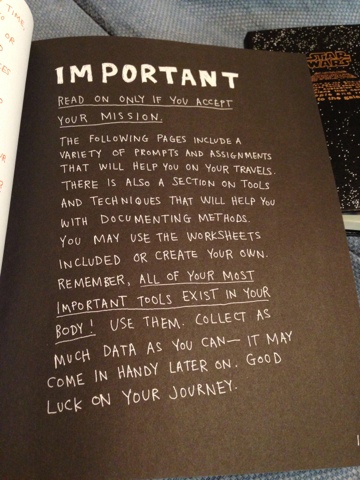 TIME,
OR
IMPORTANT
READ ON ONLY IF YOU ACCEPT
YOUR MISSION.
THE FOLLOWING PAGES INCLUDE A
VARIETY OF PROMPTS AND ASSIGNMENTS
THAT WILL HELP YOU ON YOUR TRAVELS.
THERE IS ALSO A SECTION ON TOOLS
AND TECHNIQUES THAT WILL HELP YOU
WITH DOCUMENTING METHODS.
YOU MAY USE THE WORKSHEETS
INCLUDED OR CREATE YOUR OWN.
REMEMBER, ALL OF YOUR MOST
IMPORTANT TOOLS EXIST IN YOUR
BODY! USE THEM. COLLECT AS
MUCH DATA AS YOU CAN— IT MAY
COME IN HANDY LATER ON. GOOD
LUCK ON YOUR JOURNEY.
STAR
WARS